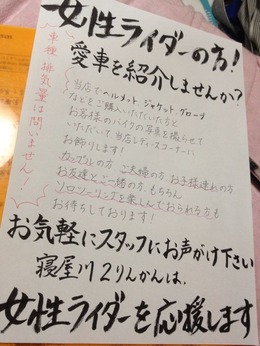 女性ライダーの方!
愛車を紹介しませんか?
車種、排気量は問いません!
当店でヘルメット ジャケット グローブ
などをご購入いただいた方と
お客様のバイクの写真を撮らせて
いただいて当店レディースコーナーに
お飾りします!
カップルの方 ご夫婦の方 お子様連れの方
お友達とご一緒の方 もちろん
ソロツーリングを楽しんでおられる方も
お待ちしております!
お気軽にスタッフにお声がけ下さい
寝屋川2りんかんは、
女性ライダーを応援します